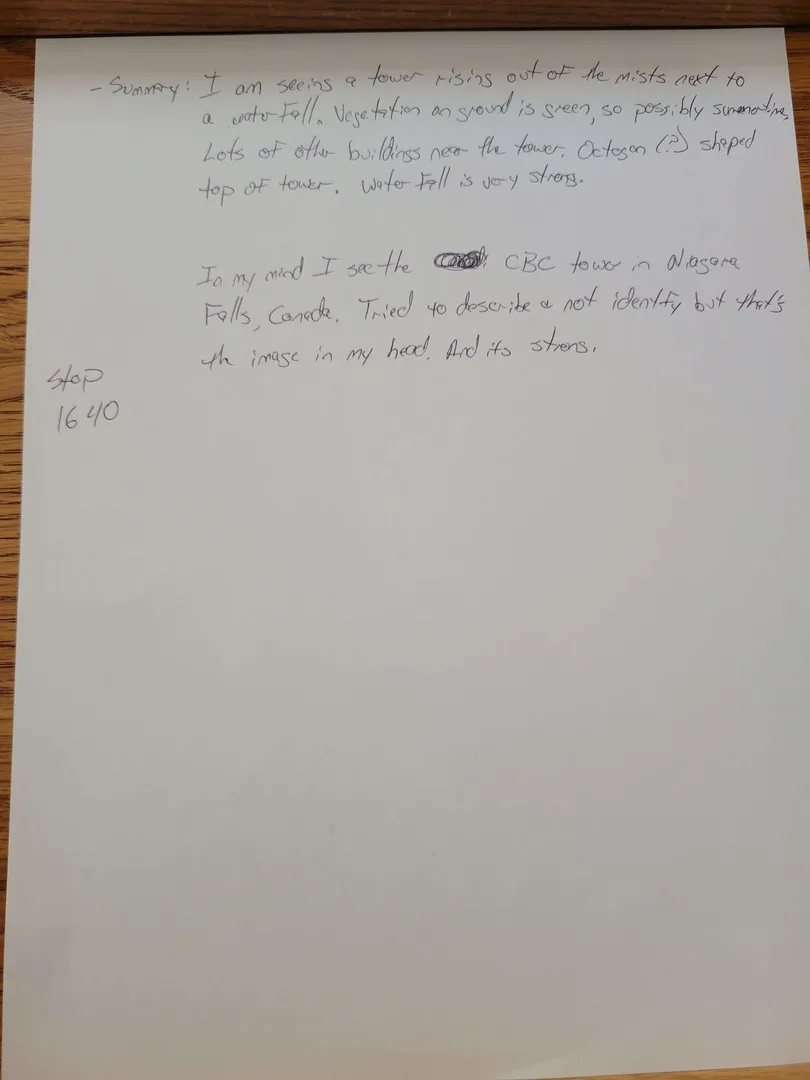 - Summary: I am seeing a tower rising out of the mists next to
a water fall. Vegetation on ground is green, so possibly summertime.
Lots of other buildings near the tower. Octogon (?) shaped
top of tower. Water fall is very strong.
In my mind I see the CBC tower in Niagara
Falls, Canada. Tried to describe & not identify but that's
the image in my head. And its strong.
Stop
1640